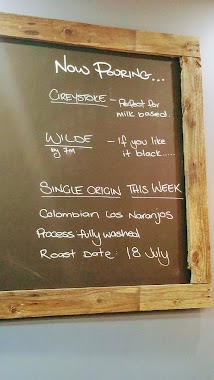 Now Pouring...
GREYSTOKE - Perfect for
milk based.
WILDE - If you like
by 7M it black.....
SINGLE ORIGIN THIS WEEK
Colombian Los Naranjos
Process fully washed
Roast Date: 18 July